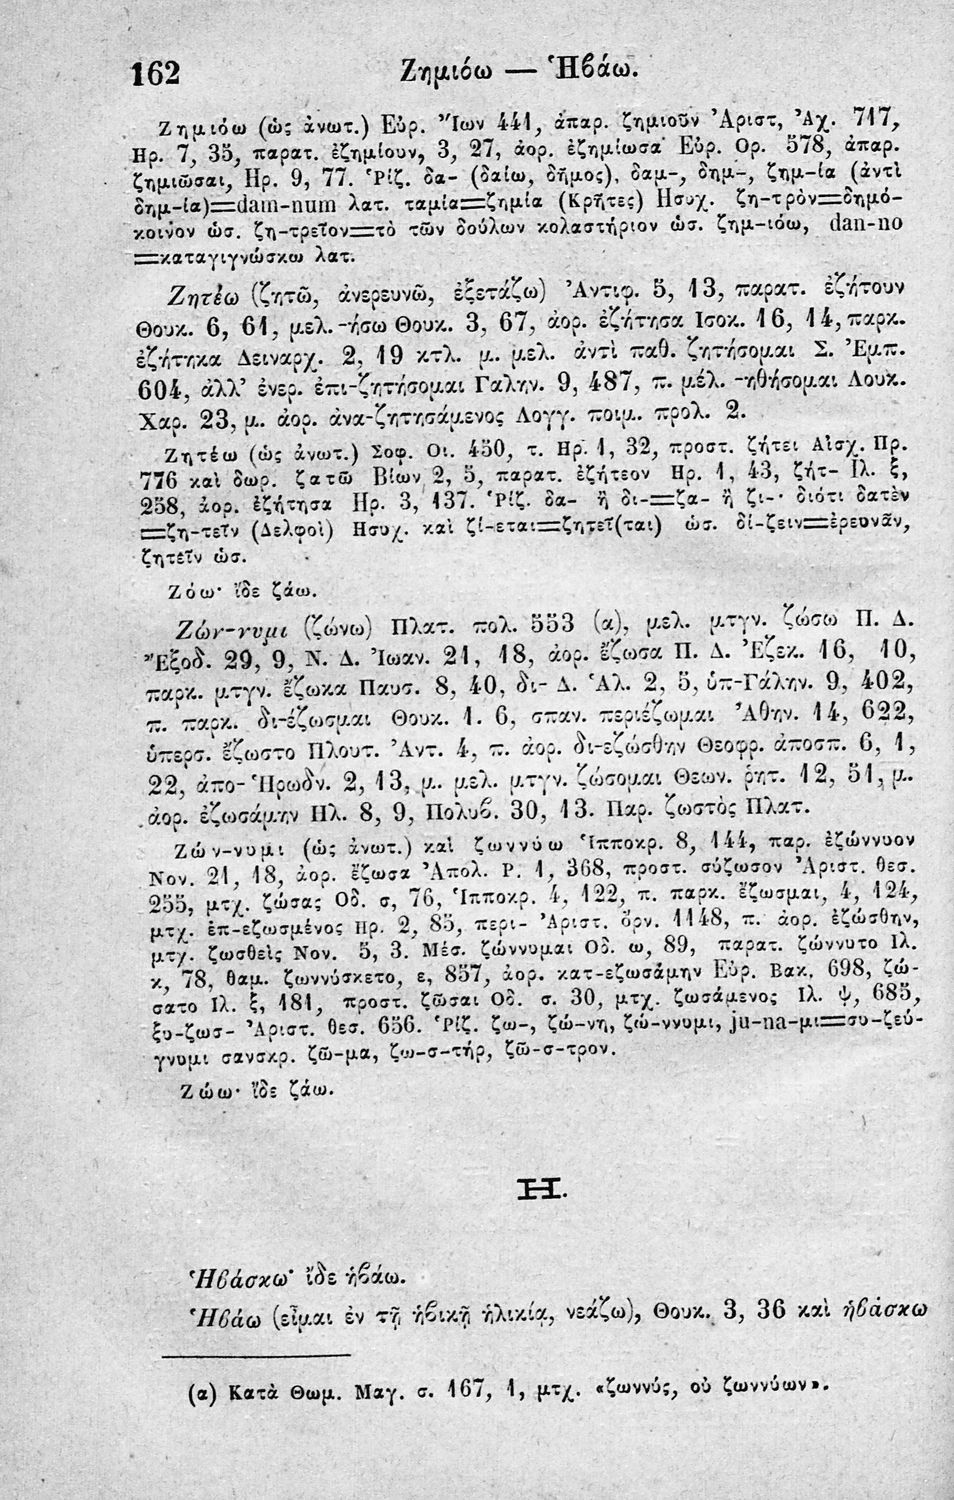 162 Ζημιόω — Ἡβάω.
Ζημιόω (ὡς ἀνωτ.) Εὐρ. Ἴων 441, ἀπαρ. ζημιοῦν Ἀριστ, Ἀχ. 717,
Ηρ. 7, 35, παρατ. ἐζημίουν, 3, 27, ἀορ. ἐζημίωσα Εὐρ. Ορ. 578, ἀπαρ.
ζημιῶσαι, Ηρ. 9, 77. Ῥίζ. δα- (δαίω, δῆμος), δαμ-, δημ-, ζημ-ία (ἀντὶ
δημ-ία)=dam-num λατ. ταμία=ζημία (Κρῆτες) Ησυχ. ζη-τρὸν=δημό-
κοινον ὡσ. ζη-τρεῖον=τὸ τῶν δούλων κολαστήριον ὡσ. ζημ-ιόω, dan-no
=καταγιγνώσκω λατ.
Ζητέω (ζητῶ, ἀνερευνῶ, ἐξετάζω) Ἀντιφ. 5, 13, παρατ. ἐζήτουν
Θουκ. 6, 61, μελ. -ήσω Θουκ. 3, 67, ἀορ. ἐζήτησα Ισοκ. 16, 14, παρκ.
ἐζήτηκα Δειναρχ. 2, 19 κτλ. μ. μελ. ἀντὶ παθ. ζητήσομαι Σ. Ἐμπ.
604, ἀλλ’ ἐνερ. ἐπι-ζητήσομαι Γαλην. 9, 487, π. μέλ. -ηθήσομαι Λουκ.
Χαρ. 23, μ. ἀορ. ἀνα-ζητησάμενος Λογγ. ποιμ. προλ. 2.
Ζητέω (ὡς ἀνωτ.) Σοφ. Οι. 450, τ. Ηρ. 1, 32, προστ. ζήτει Αἰσχ. Πρ.
776 καὶ δωρ. ζατῶ Βίων 2, 5, παρατ. ἐζήτεον Ηρ. 1, 43, ζήτ- Ιλ. ξ,
258, ἀορ. ἐζήτησα Ηρ. 3, 137. Ῥίζ. δα- ἢ δι-=ζα- ἢ ζι-· διότι δατὲν
=ζη-τεῖν (Δελφοὶ) Ησυχ. καὶ ζί-εται=ζητεῖ(ται) ὡσ. δί-ζειν=ἐρευνᾶν,
ζητεῖν ὡσ.
Ζόω· ἴδε ζάω.
Ζών-νυμι (ζώνω) Πλατ. πολ. 553 (α), μελ. μτγν. ζώσω Π. Δ.
Ἔξοδ. 29, 9, Ν. Δ. Ἰωαν. 21, 18, ἀορ. ἔζωσα Π. Δ. Ἐζεκ. 16, 10,
παρκ. μτγν. ἔζωκα Παυσ. 8, 40, δι- Δ. Ἁλ. 2, 5, ὑπ-Γάλην. 9, 402,
π. παρκ. δι-έζωσμαι Θουκ. 1. 6, σπαν. περιέζωμαι Ἀθην. 14, 622,
ὑπερσ. ἔζωστο Πλουτ. Ἀντ. 4, π. ἀορ. δι-εζώσθην Θεοφρ. ἀποσπ. 6, 1,
22, ἀπο- Ἡρωδν. 2, 13, μ. μελ. μτγν. ζώσομαι Θεων. ῥητ. 12, 51, μ.
ἀορ. ἐζωσάμην Ηλ. 8, 9, Πολυβ. 30, 13. Παρ. ζωστὸς Πλατ.
Ζών-νυμι (ὡς ἀνωτ.) καὶ ζωννύω Ἱπποκρ. 8, 144, παρ. ἐζώννυον
Νον. 21, 18, ἀορ. ἔζωσα Ἀπολ. Ρ. 1, 368, προστ. σύζωσον Ἀριστ. θεσ.
255, μτχ. ζώσας Οδ. σ, 76, Ἱπποκρ. 4, 122, π. παρκ. ἔζωσμαι, 4, 124,
μτχ. ἐπ-εζωσμένος Ηρ. 2, 85, περι- Ἀριστ. ὄρν. 1148, π. ἀορ. ἐζώσθην,
μτχ. ζωσθεὶς Νον. 5, 3. Μέσ. ζώννυμαι Οδ. ω, 89, παρατ. ζώννυτο Ιλ.
κ, 78, θαμ. ζωννύσκετο, ε, 857, ἀορ. κατ-εζωσάμην Εὐρ. Βακ. 698, ζώ-
σατο Ιλ. ξ, 181, προστ. ζῶσαι Οδ. σ. 30, μτχ. ζωσάμενος Ιλ. ψ, 685,
ξυ-ζωσ- Ἀριστ. θεσ. 656. Ῥίζ. ζω-, ζώ-νη, ζώ-ννυμι, ju-na-μι=συ-ζεύ-
γνυμι σανσκρ. ζῶ-μα, ζω-σ-τήρ, ζῶ-σ-τρον.
Ζώω· ἴδε ζάω.
Η.
Ἡβάσκω· ἴδε ἡβάω.
Ἡβάω (εἶμαι ἐν τῇ ἡβικῇ ἡλικίᾳ, νεάζω), Θουκ. 3, 36 καὶ ἡβάσκω
(α) Κατὰ Θωμ. Μαγ. σ. 167, 1, μτχ. «ζωννύς, οὐ ζωννύων».